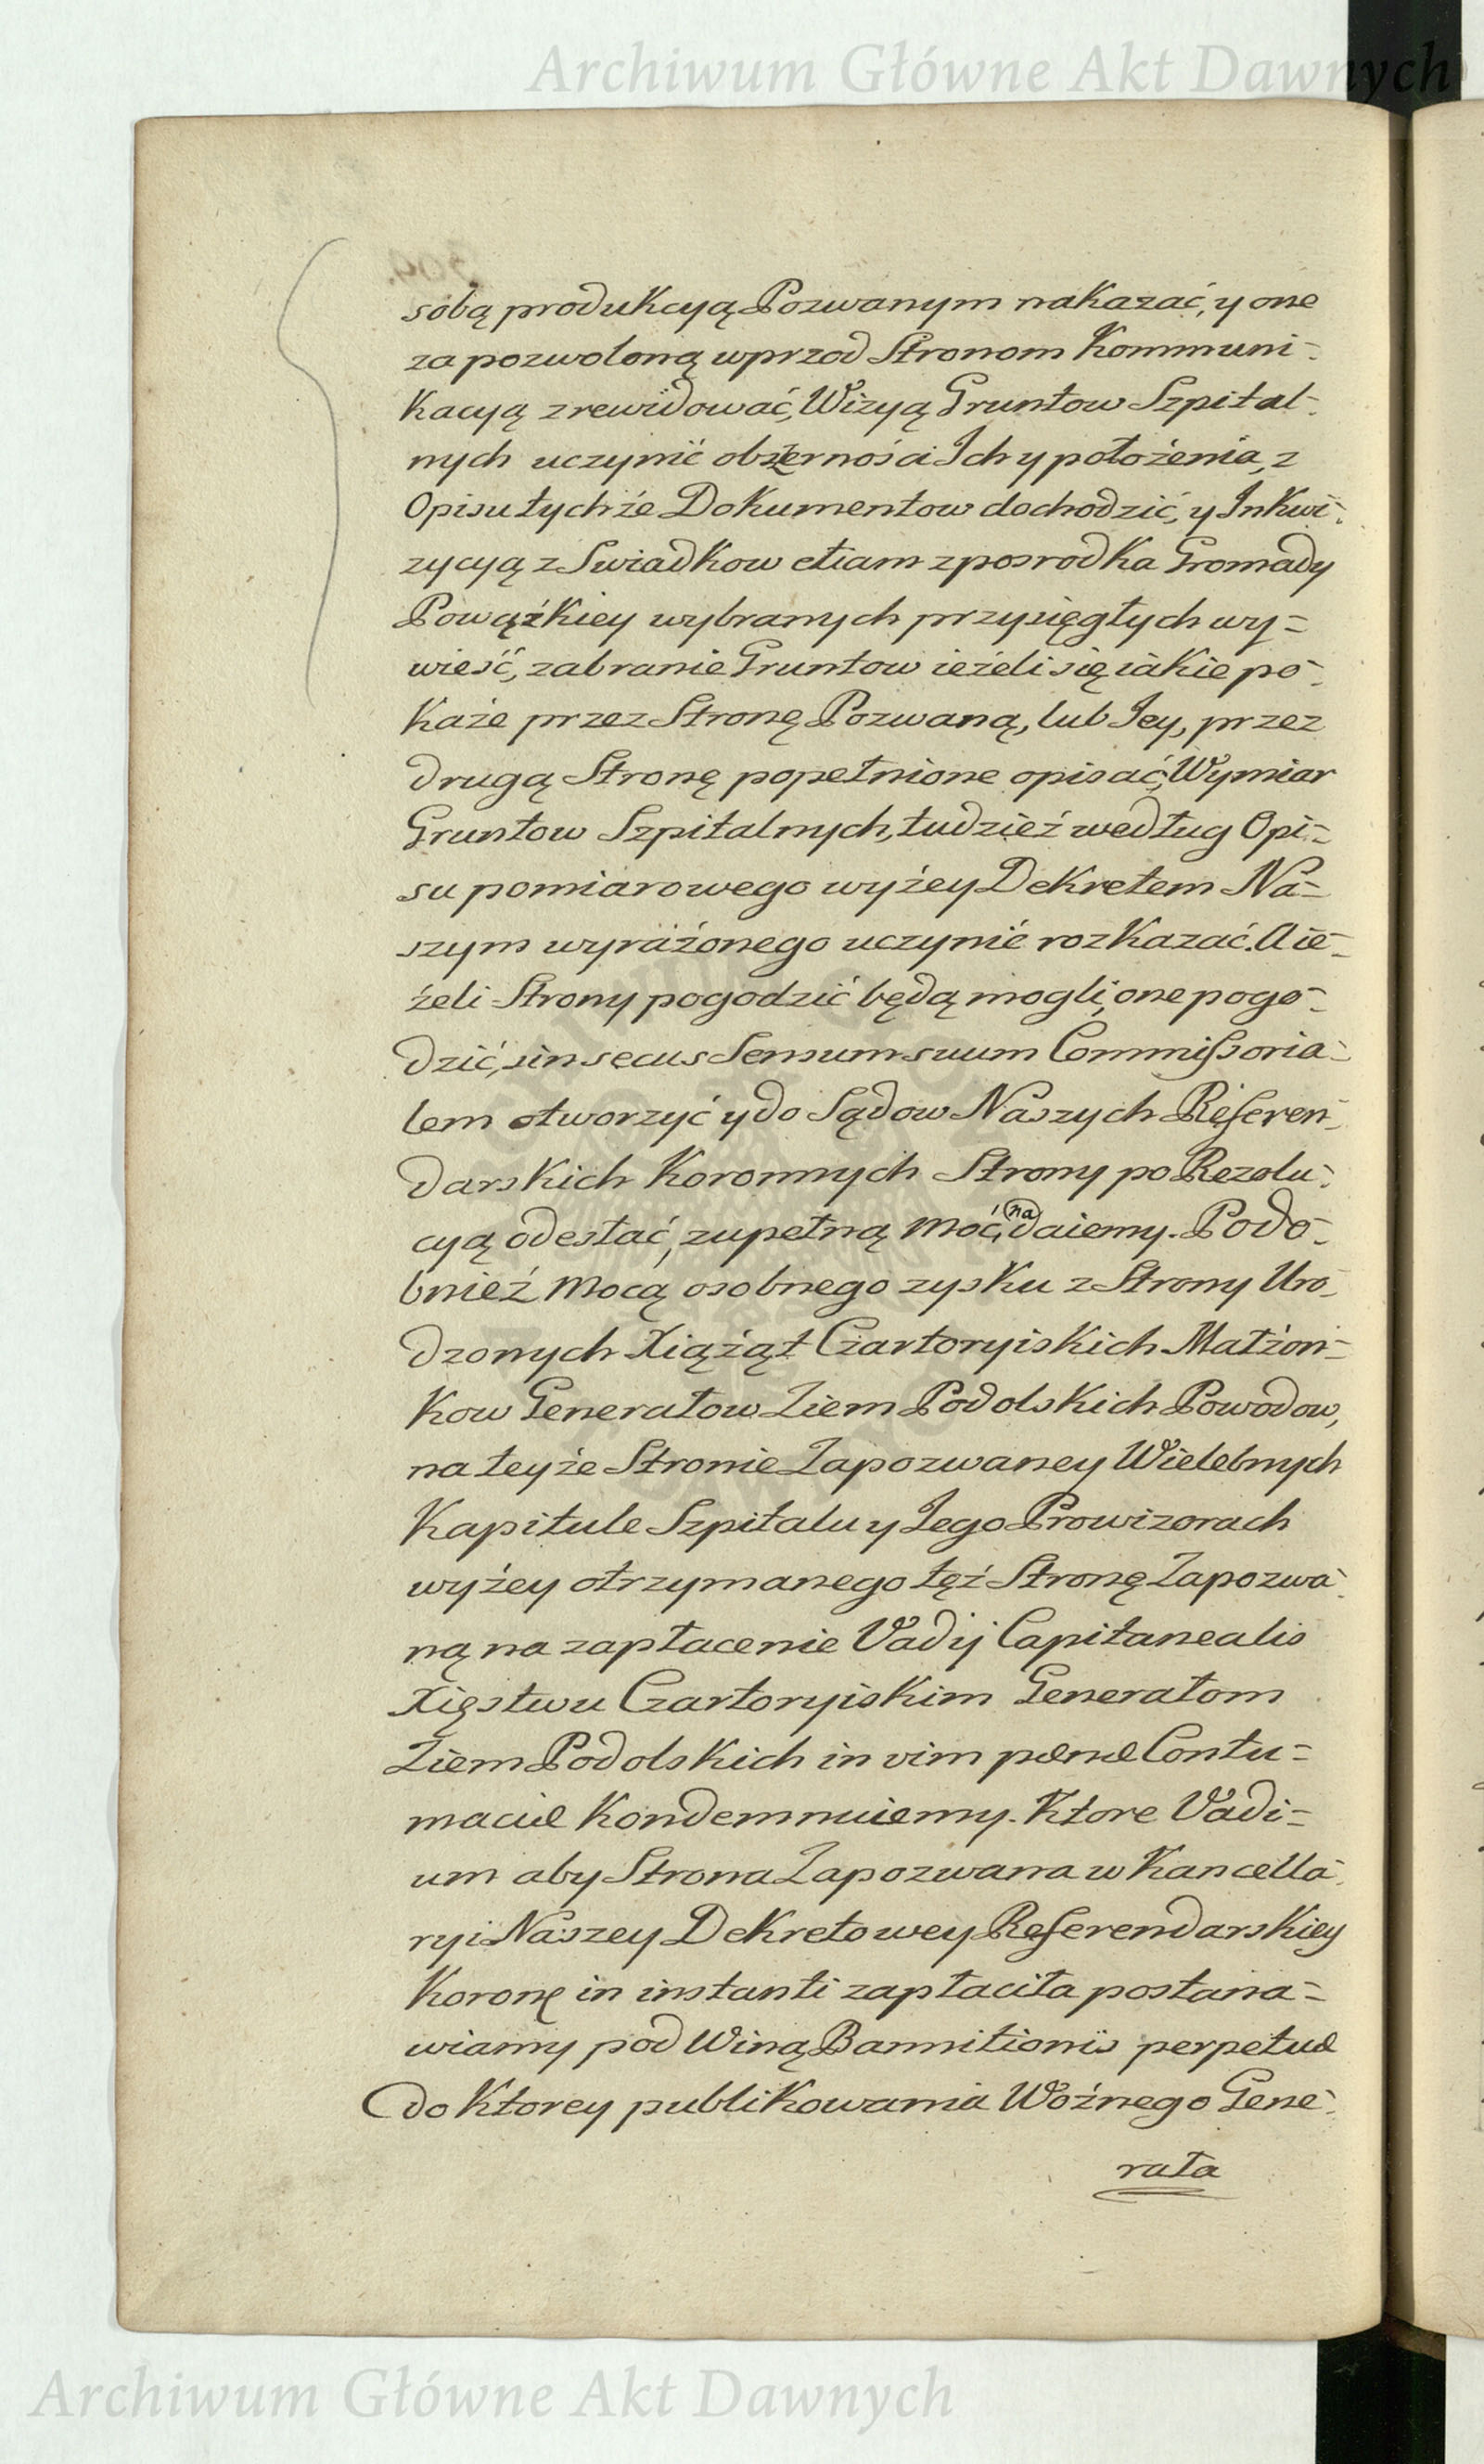 Archiwum Główne Akt Dawnych
sobą produkcyą Pozwanym nakazać, y one
za pozwoloną wprzod Stronom Kommuni-
kacyą zrewidować, Wizyą Gruntow Szpital-
nych uczynić obszernosci Ich y położenia, z
Opisu tychże Dokumentow dochodzić, y Inkwi-
zycyą z Swiadkow etiam zposrodka Gromady
Powązkiey wybranych przysięgłych wy-
wieść, zabranie Gruntow ieżeli się iakie po-
każe przez Stronę Pozwaną, lub Jey, przez
drugą Stronę popełnione opisać, Wymiar
Gruntow Szpitalnych, tudzież według Opi-
su pomiarowego wyżey Dekretem Na-
szym wyrażonego uczynić rozkazać. A ie-
żeli Strony pogodzić będą mogli, one pogo-
dzić, sin secus Sensum suum Commissoria-
lem otworzyć y do Sądow Naszych Referen-
darskich Koronnych Strony po Rezolu-
cyą odesłać, zupełną moc, na daiemy. Podo-
bnież mocą osobnego zysku z Strony Uro-
dzonych Xiążąt Czartoryiskich Małżon-
kow Generałow Ziem Podolskich Powodow,
na teyże Stronie Zapozwaney Wielebnych
Kapitule Szpitalu y Jego Prowizorach
wyżey otrzymanego też Stronę Zapozwa-
ną na zapłacenie Vadij Capitanealis
Xięstwu Czartoryiskim Generałom
Ziem Podolskich in vim pœnæ Contu-
maciæ kondemnuiemy. Ktore Vadi-
um aby Strona Zapozwana w Kancella-
ryi Naszey Dekretowey Referendarskiey
Koronę in instanti zapłaciła postana-
wiamy pod Winą Bannitionis perpetuæ
do Ktorey publikowania Woźnego Gene-
rała
Archiwum Główne Akt Dawnych